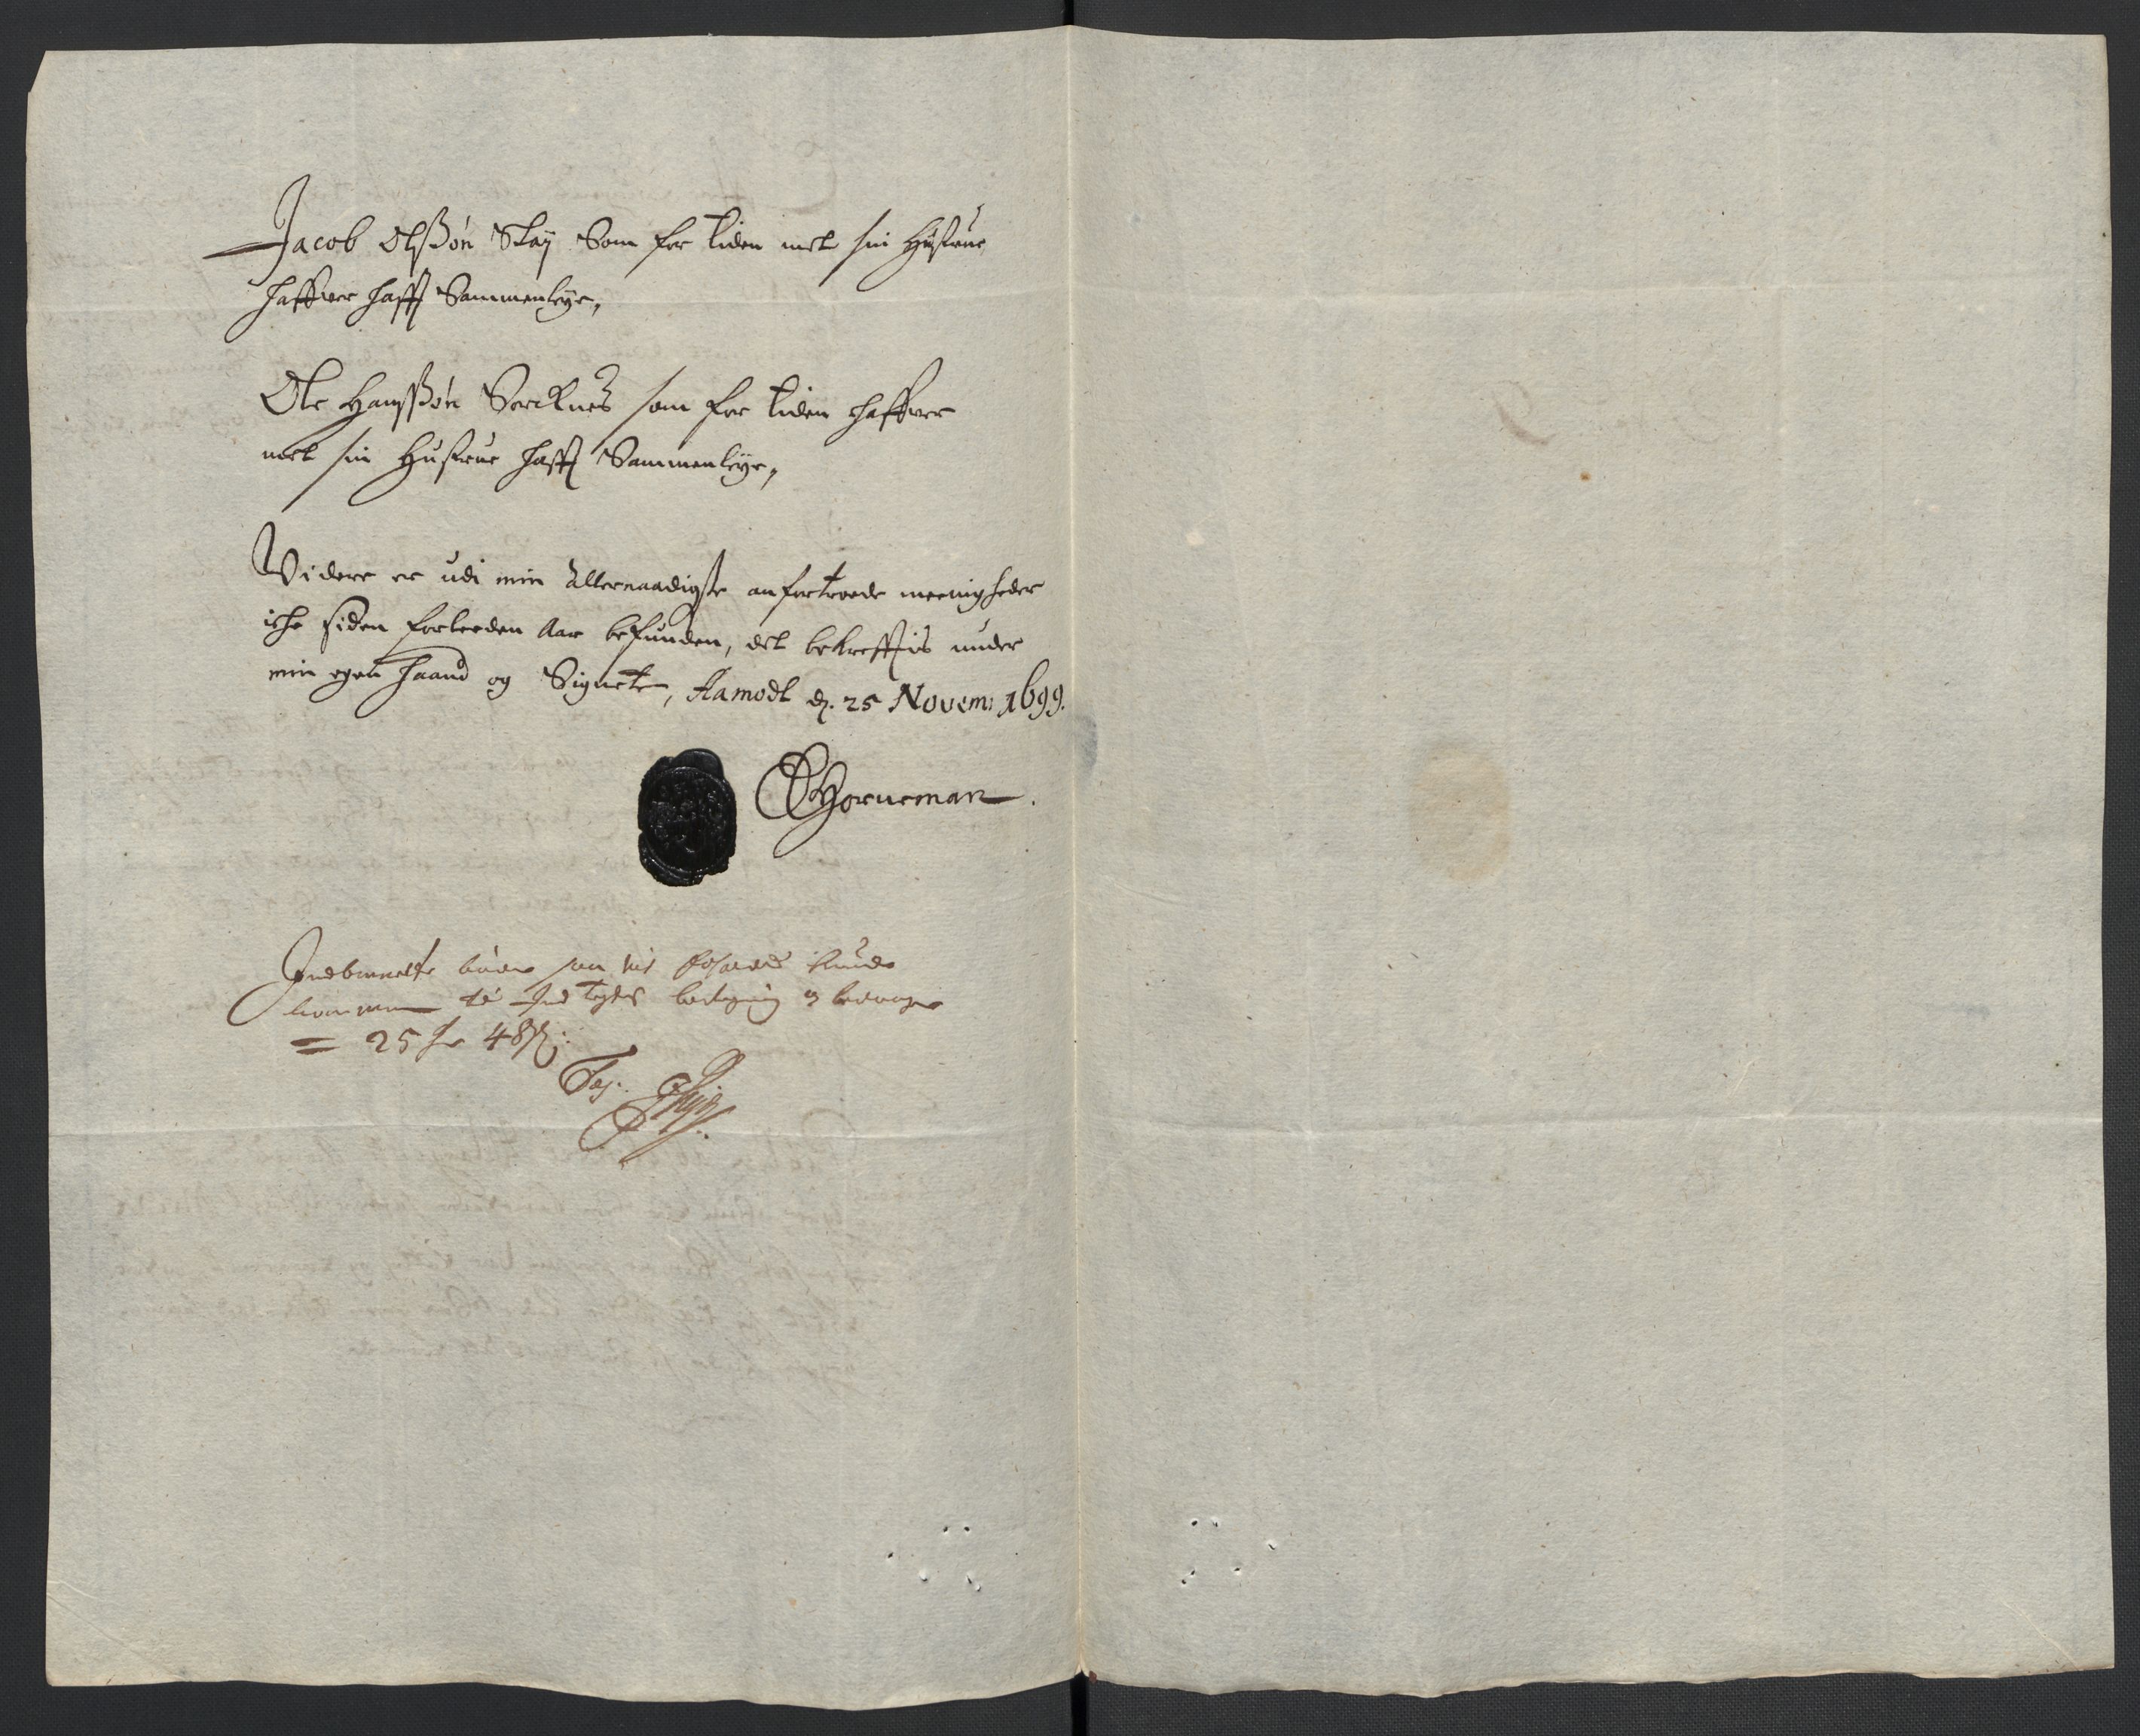 Jacob Olßøn Støij Som for tiden met sin Hustrue
haffver hafft Sammenleye,
Ole Hanßøn Sørcknes som for tiden haffver
met sin Hustrue hafft Sammenleye,
Widere er udi min allernaadigste anfortroede meenigheder
iche siden forleeden Aar befunden, det bekrefftis under
min egen haand og Signete, Aamodt d. 25 Novem: 1699.
Horneman.
bøder
kommer til Indtegts og
= 25 48 ß: